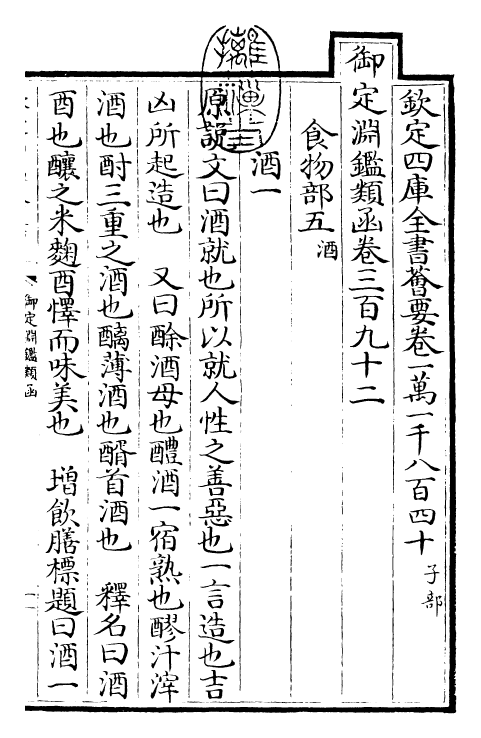 欽定四庫全書薈要卷一萬一千八百四十 子部
御定淵鑑類函卷三百九十二
食物部五 酒
酒一
原説文曰酒就也所以就人性之善惡也一言造也吉
凶所起造也 又曰酴酒母也醴酒一宿熟也醪汁滓
酒也酎三重之酒也醨薄酒也醑首酒也 釋名曰酒
酉也釀之米麴酉懌而味美也 增飲膳標題曰酒一
御定淵鑑類函